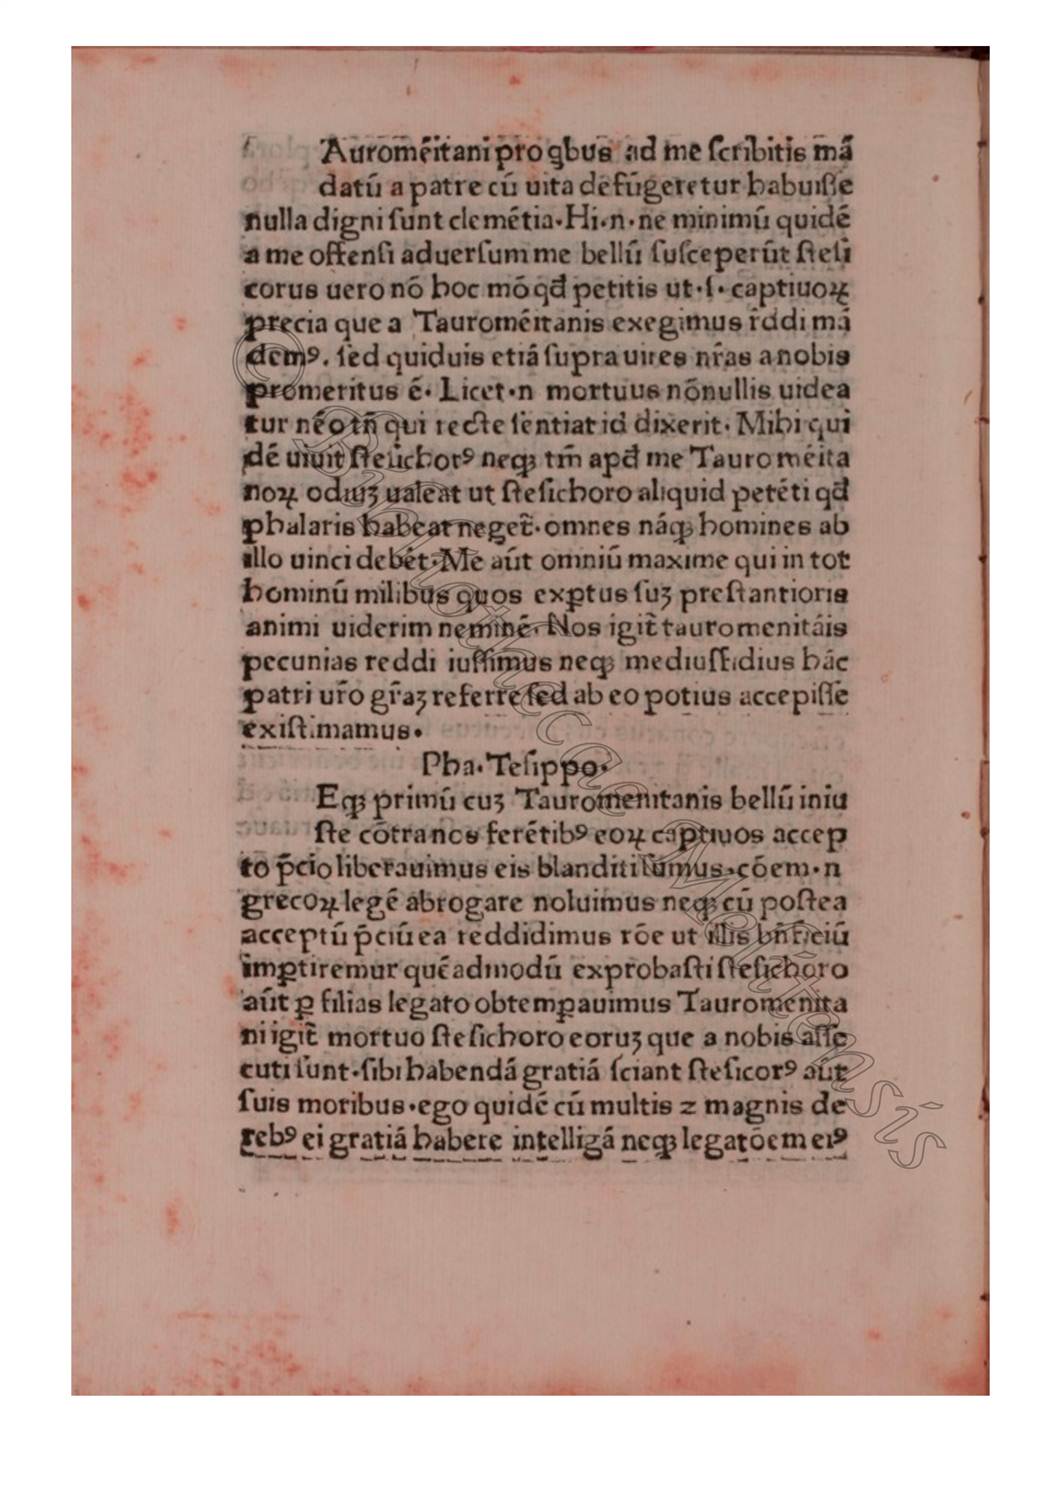 Auromēitani pro qbus ad me ſcribitis mā
datū a patre cū uita defūgeretur habuiſſe
nulla digni ſunt clemētia·Hi·n·ne minimū quidē
a me offenſi aduerſum me bellū ſuſceperūt ſteſi
corus uero nō hoc mō qđ petitis ut·ſ·captiuoꝝ
precia que a Tauromēitanis exegimus r̄ddi mā
demꝰ. ſed quiduis etiā ſupra uires nr̄as a nobis
promeritus ē· Licet·n mortuus nōnullis uidea
tur nēo tn̄ qui recte ſentiat id dixerit· Mihi qui
dē uiuit ſteſichorꝰ neqꝫ tm̄ apđ me Tauromēita
noꝝ odiuꝫ ualeat ut ſteſichoro aliquid petēti qđ
phalaris habeat neget̄·omnes nāqꝫ homines ab
illo uinci debēt·Me aūt omniū maxime qui in tot
hominū milibus quos exꝑtus ſuꝫ preſtantioris
animi uiderim neminē· Nos igit̄ tauromenitāis
pecunias reddi iuſſimus neqꝫ mediuſfidius hāc
patri ur̄o gr̄aꝫ referre ſed ab eo potius accepiſſe
exiſtimamus·
Pha·Teſippo·
Eqꝫ primū cuꝫ Tauromenitanis bellū iniu
ſte cōtra nos ferētibꝰ eoꝝ captiuos accep
to p̄cio liberauimus eis blanditi ſumus·cōem·n
grecoꝝ legē abrogare noluimus neqꝫ cū poſtea
acceptū p̄ciū ea reddidimus rōe ut illis bn̄ficiū
imꝑtiremur quēadmodū exprobaſti ſteſichoro
aūt ꝑ filias legato obtemꝑauimus Tauromenita
ni igit̄ mortuo ſteſichoro eoruꝫ que a nobis aſſe
cuti ſunt·ſibi habendā gratiā ſciant ſteſicorꝰ aūt
ſuis moribus·ego quidē cū multis ⁊ magnis de
rebꝰ ei gratiā habere intelligā neqꝫ legatōem eiꝰ
© Bibliotheca